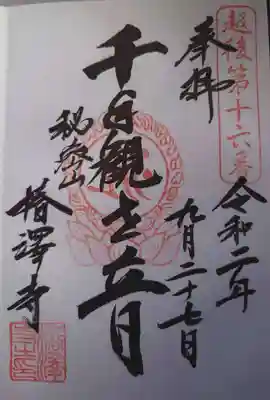 越後第十六番
奉拝
令和二年
九月二十七日
千手観世音
椿澤寺